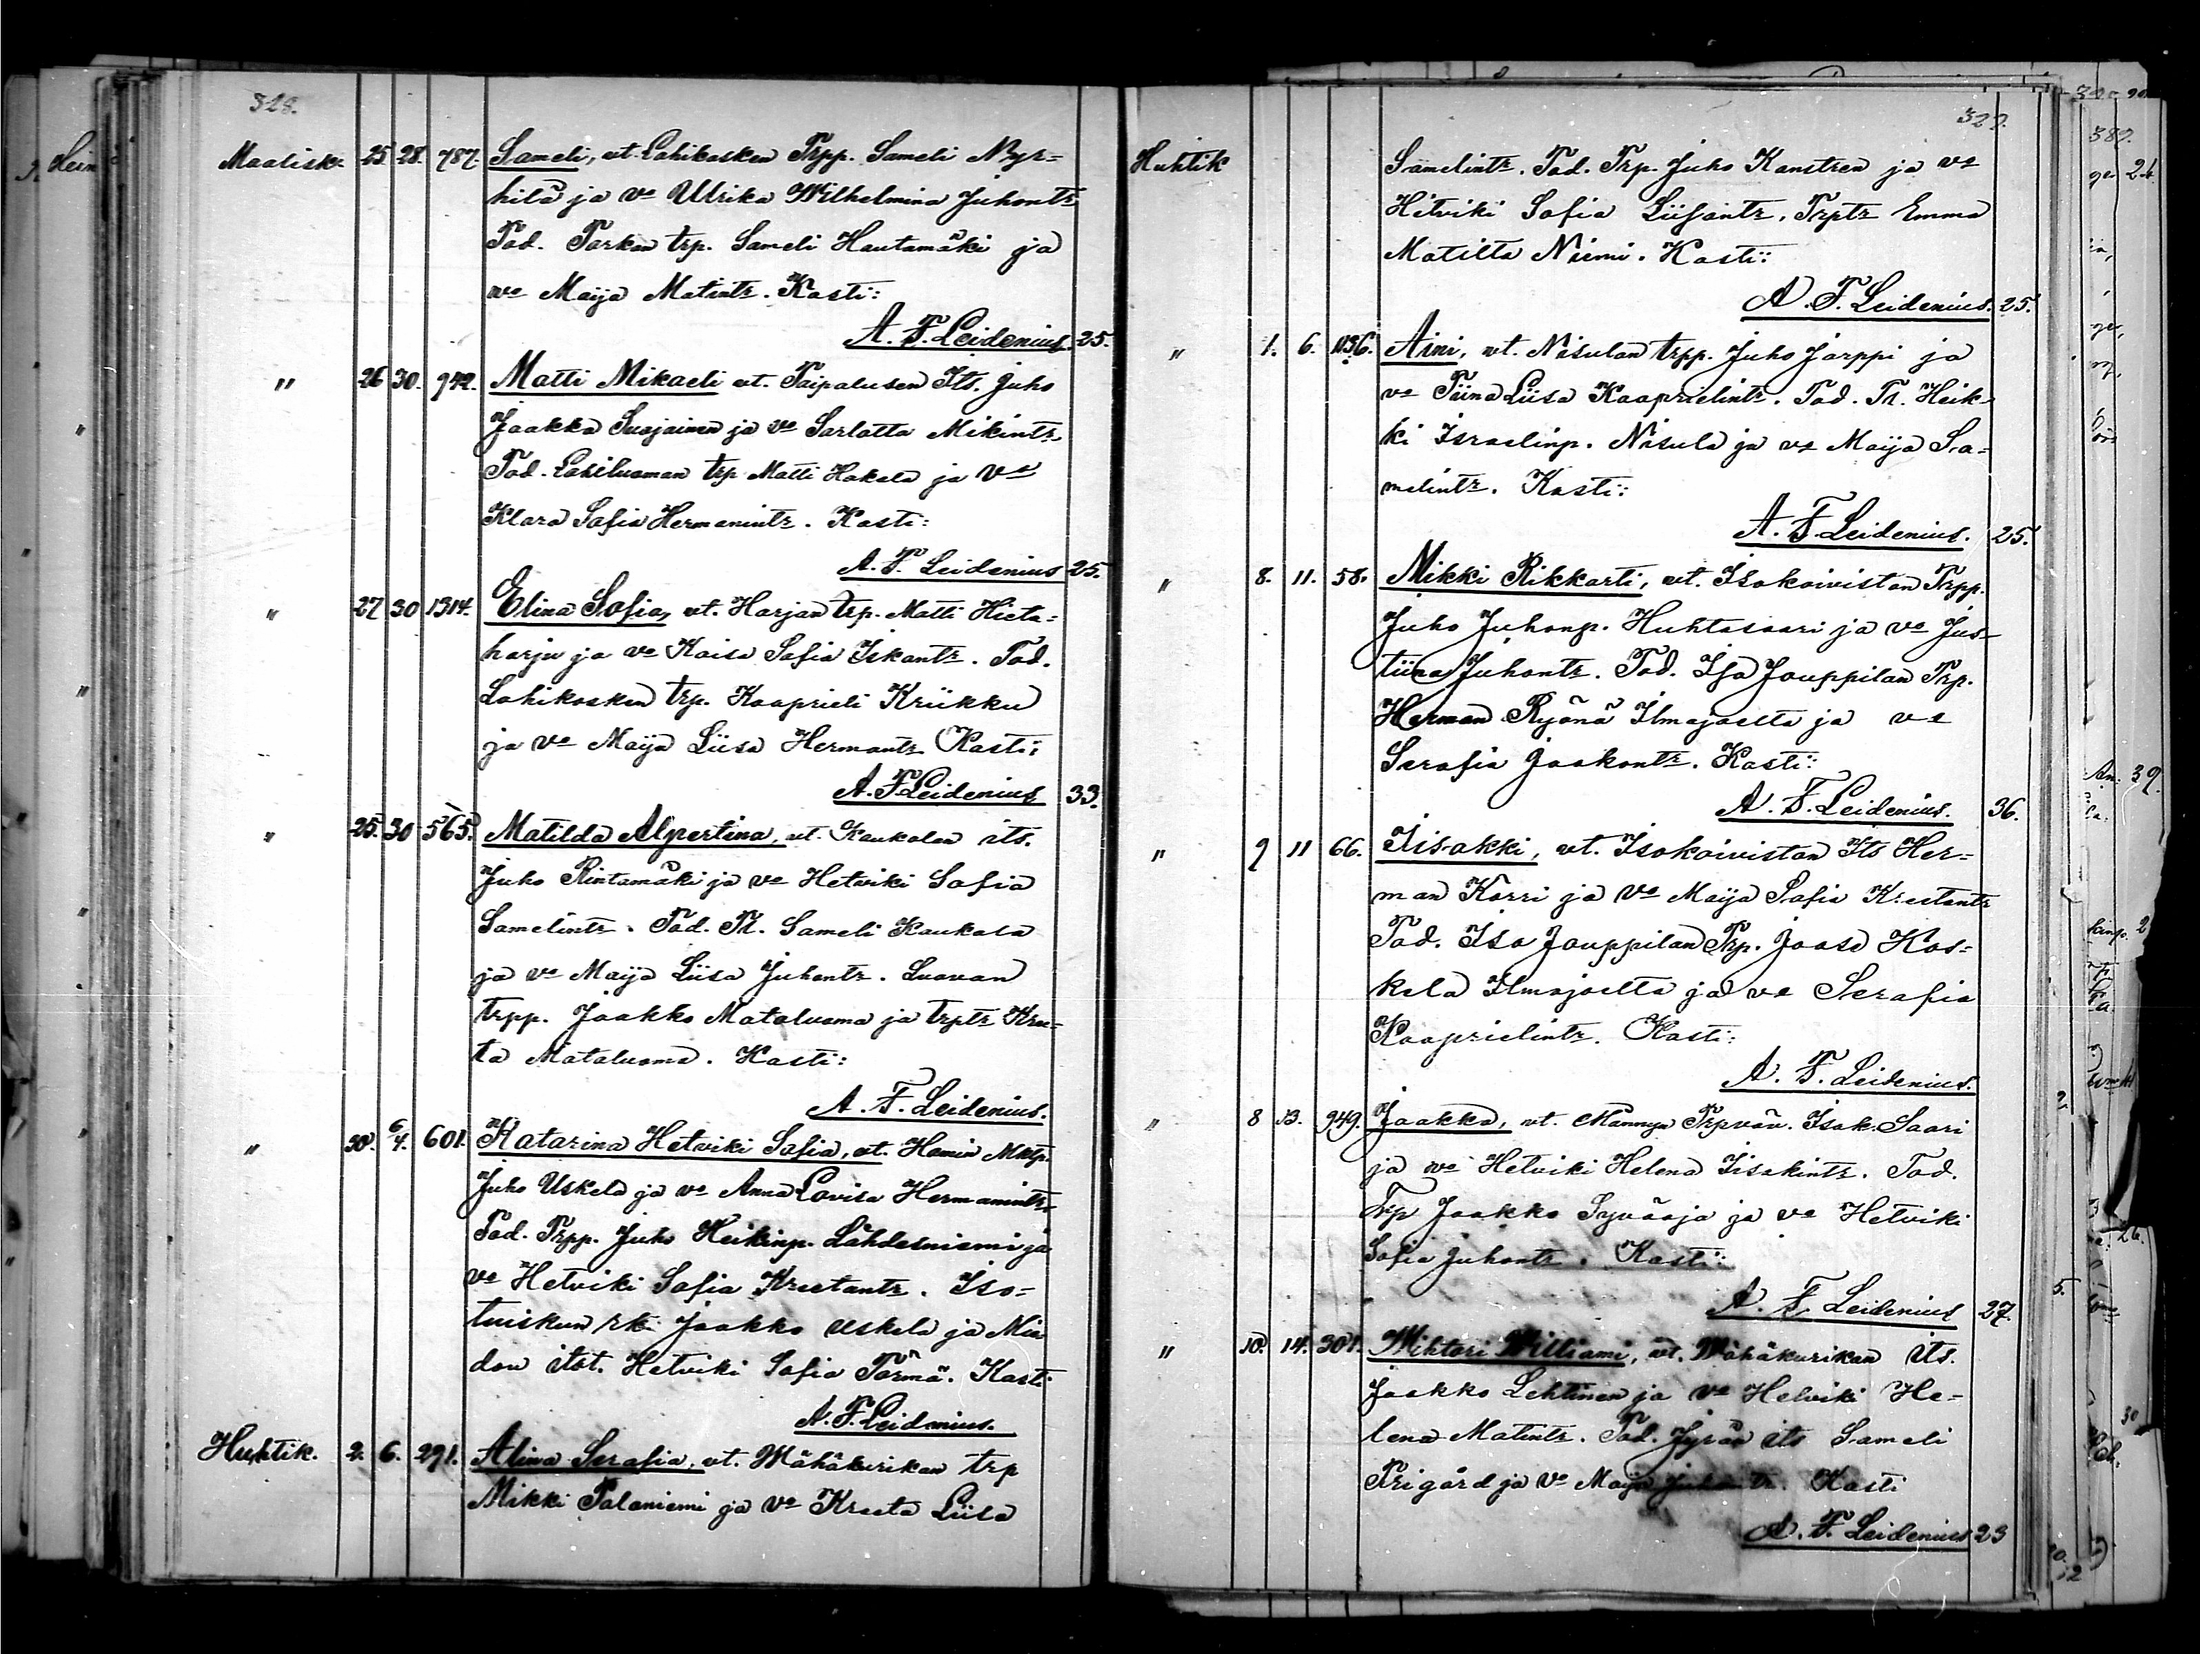 328.
Maalisk. 25. 28. 787. Sameli, vt. Lahikosken Trpp. Sameli Nyr=
hilä ja vo Ulrika Wilhelmina Juhontr
Tod. Torken trp. Sameli Hautamäki ja
vo Maija Matintr. Kasti:
A. F. Leidenius. 25.
" 26 30. 942. Matti Mikaeli vt. Taipalusen Its. Juho
Jaakko Suojainen ja vo Sarlotta Mikintr.
Tod. Lohiluoman trp Matti Hakala ja vo
Klara Sofia Hermanintr. Kasti:
A. F. Leidenius 25.
" 27 30 1314. Elina Sofia, vt. Harjan trp. Matti Hieta=
harju ja vo Kaisa Sofia Iskantr. Tod.
Lohikosken trp. Kaaprieli Kriikku
ja vo Maija Liisa Hermantr. Kasti:
A. F. Leidenius 33.
" 25. 30 565. Matilda Alpertina, vt. Kaukolan its.
Juho Rintamäki ja vo Hetviki Sofia
Samelintr. Tod. Tl. Sameli Kaukola
ja vo Maija Liisa Juhontr. Luovan
trpp. Jaakko Mataluoma ja trptr Kree-
ta Mataluoma. Kasti:
A. F. Leidenius.
" 30. 6/4. 601. Katarina Hetviki Sofia, vt. Hamin Mktp.
Juho Uskela ja vo Anna Lovisa Hermanintr.
Tod. Trpp. Juho Heikinp. Lähdesniemi ja
vo Hetviki Sofia Kreetantr. Iso=
tuiskun rk. Jaakko Uskela ja Mie
don itst. Hetviki Sofia Törmä. Kasti
A. F. Leidenius.
Huhtik. 2. 6. 291. Alina Serafia, vt. Wähäkurikan trp
Mikki Palaniemi ja vo Kreeta Liisa
329.
Huhtik Samelintr. Tod. Trp. Juho Kanstren ja vo
Hetviki Sofia Liisantr. Trptr Emma
Matilta Niemi. Kasti:
A. F. Leidenius. 25.
" 1. 6. 1136. Aini, vt. Nisulan trpp. Juho Jarppi ja
vo Tiina Liisa Kaaprielintr. Tod. Tl. Heik-
ki Israelinp. Nisula ja vo Maija Sa=
melintr. Kasti:
A. F. Leidenius. 25.
" 8. 11. 58. Mikki Rikkarti, vt. Isokoivistan Trpp.
Juho Juhonp. Huhtasaari ja vo Jus-
tiina Juhontr. Tod. Iso Jouppilan Trp.
Herman Ryönä Ilmajoelta ja vo
Serafia Jaakontr. Kasti:
A. F. Leidenius. 36.
" 9 11 66. Iisakki, vt. Isokoivistan Its Her=
man Korri ja vo Maija Sofia Kreetantr
Tod. Iso Jouppilan Trp. Jaase Kos=
kela Ilmajoelta ja vo Serafia
Kaaprielintr. Kasti:
A. F. Leidenius.
" 8 13. 949. Jaakko, vt. Männyn Trpväv. Isak. Saari
ja vo Hetviki Helena Iisakintr. Tod.
Trp Jaakko Syväoja ja vo Hetviki
Sofia Juhontr. Kasti:
A. F. Leidenius 27.
" 10. 14. 301. Wihtori Williami, vt. Wähäkurikan its.
Jaakko Lehtinen ja vo Helviki He=
lena Matintr. Tod. Jyrän its Sameli
Prigård ja vo Maija Juhontr. Kasti
A. F. Leidenius 23